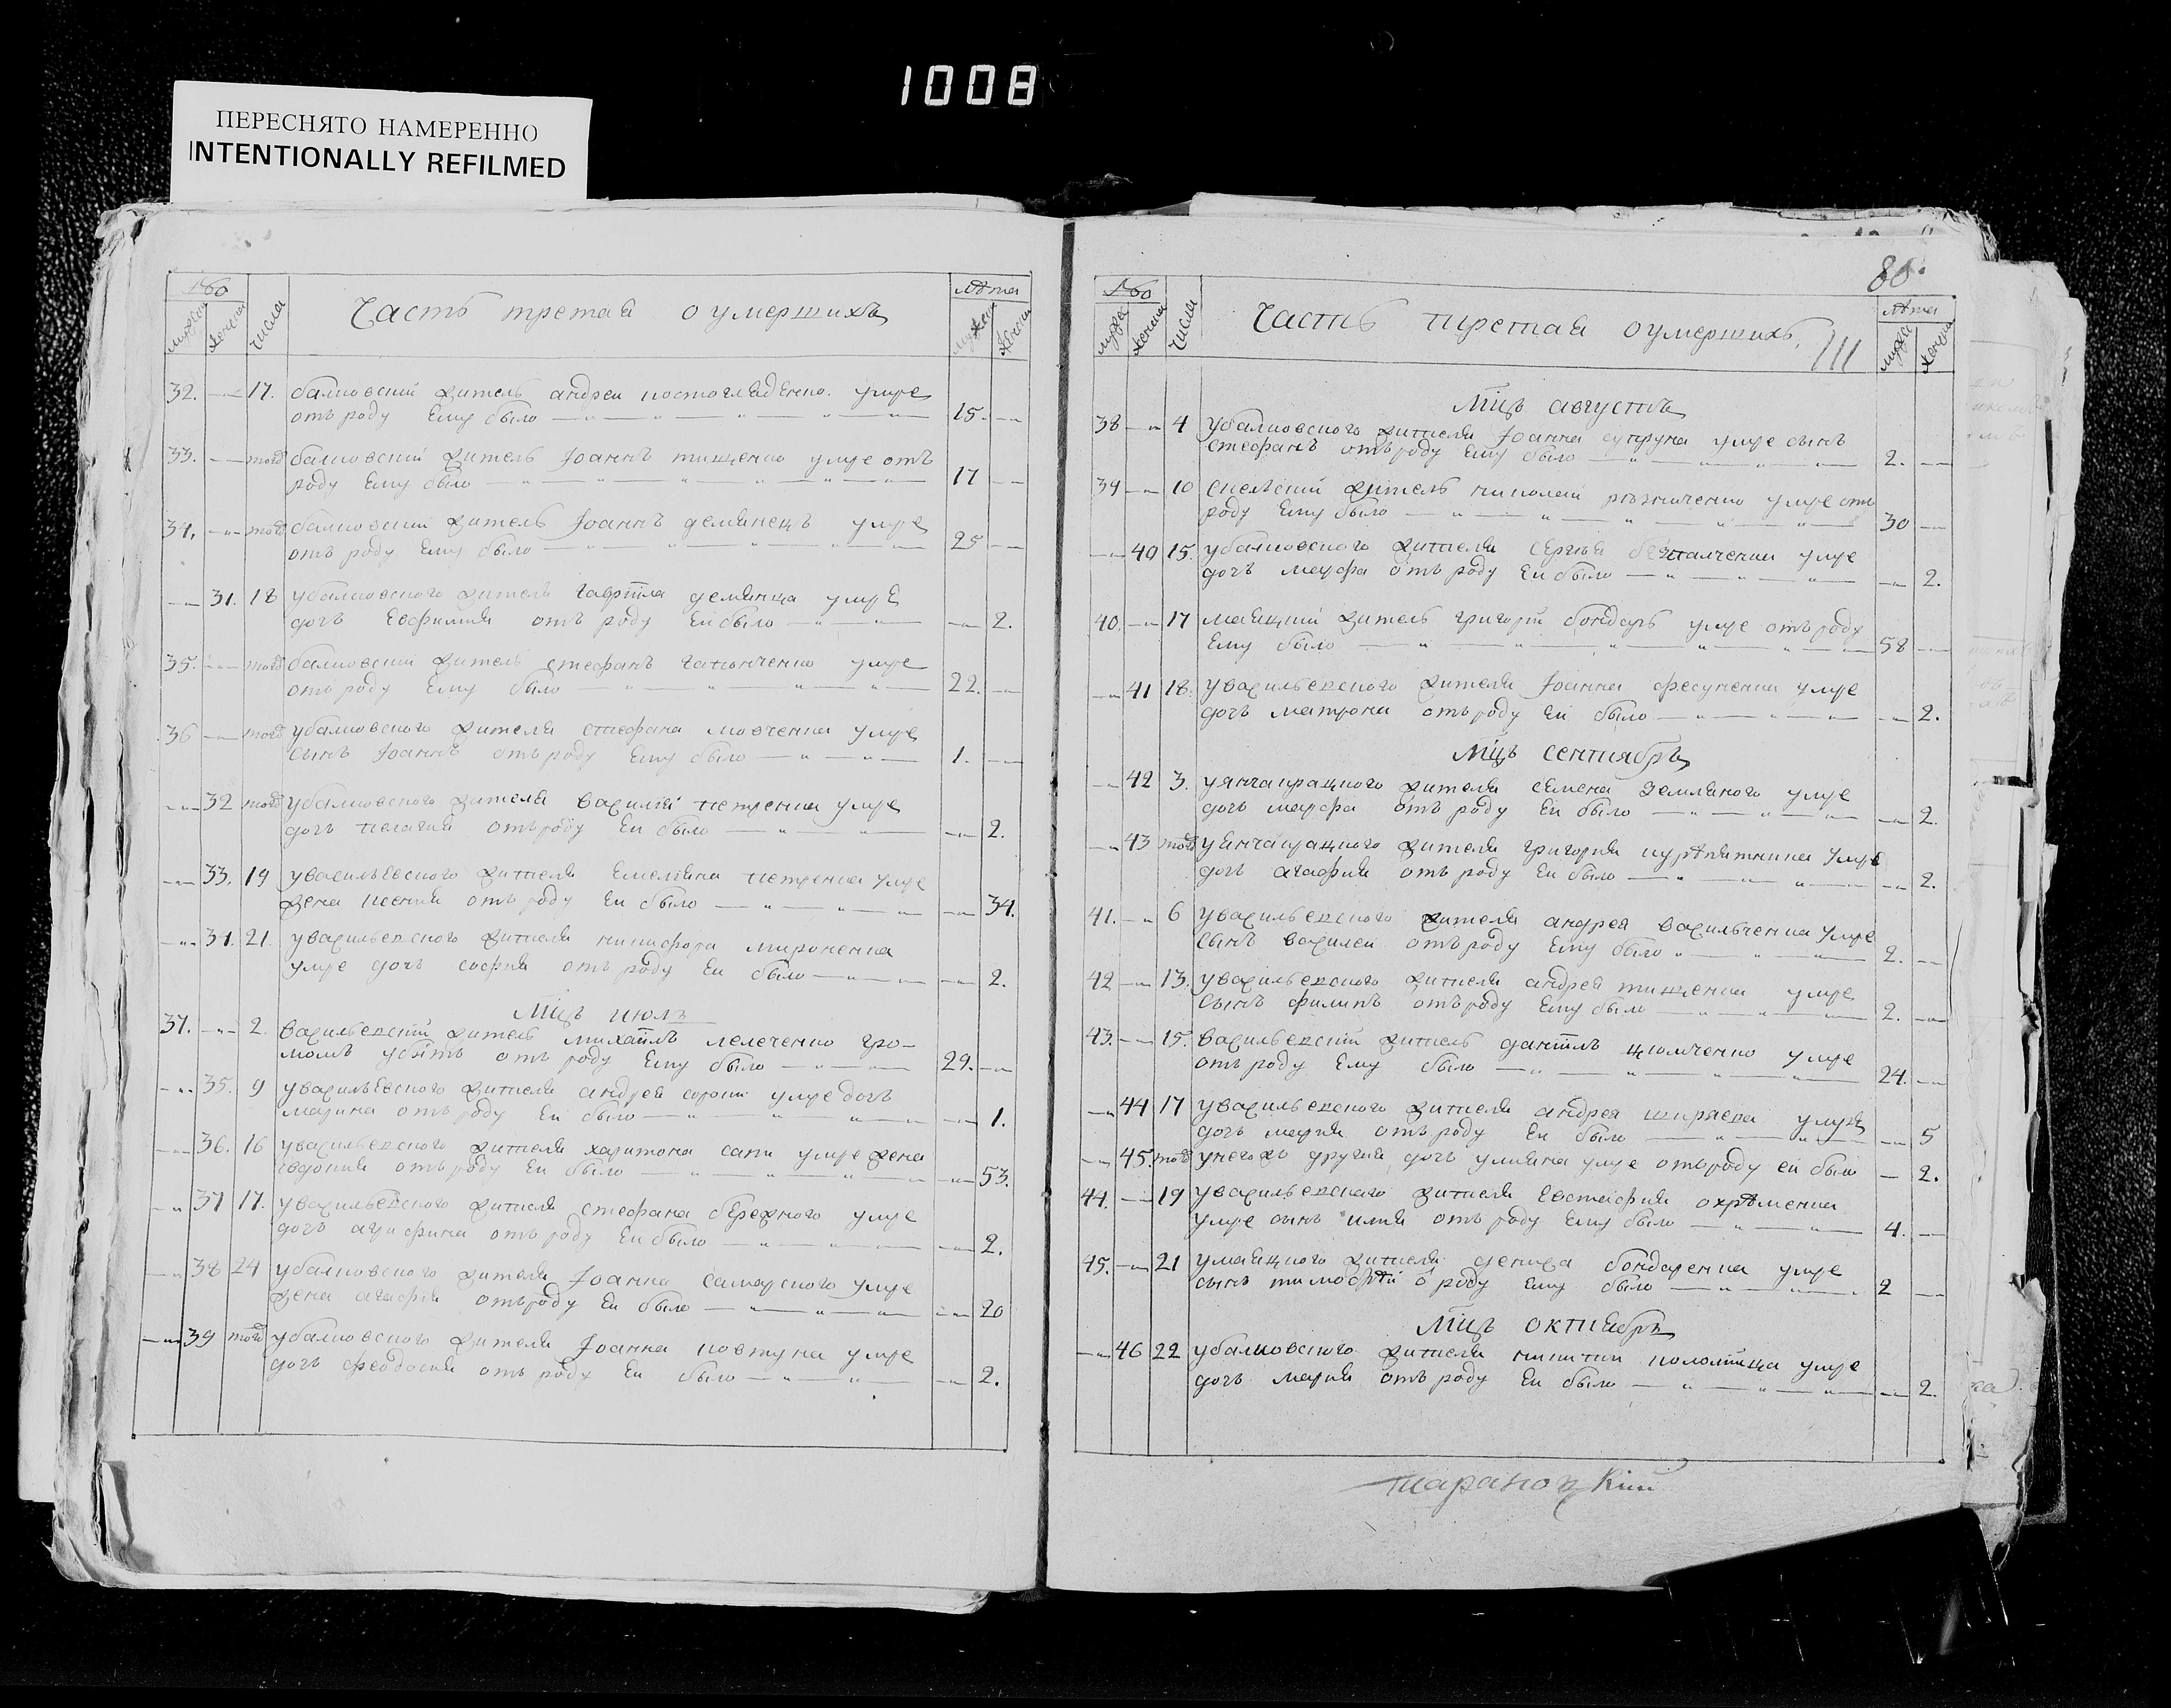 1008
ПЕРЕСНЯТО НАМЕРЕННО
INTENTIONALLY REFILMED
числа Часть третая о умершихъ лѣта
32. 17. балковский житель андреи костогладенко. умре
отъ роду Ему было 15.
33. тогож балковский житель Іоаннъ тищенко умре отъ
роду Ему было 17
34. тогож балковский житель Іоаннъ демянецъ умре
отъ роду Ему было 25
31. 18 убалковского жителя гавріила демянца умре
дочъ Евфимия отъ роду Еи было 2.
35. тогож балковский житель стефанъ умре
отъ роду Ему было 22.
36 тогож убалковского жителя стефана мовченка умре
сынъ Іоаннъ отъ роду Ему было 1.
32 тогож убалковского жителя василия петренка умре
дочъ пелагия отъ роду Еи было 2.
33. 19 увасильевского жителя Емелияна петренка умре
жена ксения отъ роду Еи было 34.
34. 21. увасильевского жителя никифора мироненка
умре дочъ софия отъ роду Еи было 2.
Мцъ июлъ
37. 2. василъевский житель михаилъ лелеченко гро-
момъ убитъ отъ роду Ему было 29.
35. 9 увасильевского жителя андрея сороки умре дочъ
марина отъ роду Еи было 1.
36. 16 увасильевского жителя харитона сапи умре жена
евдокия отъ роду Еи было 53.
37 17. увасильевского жителя стефана бережного умре
дочъ отъ роду Еи было 2.
38 24 убалковского жителя Іоанна самарского умре
жена агафия отъ роду Еи было 20
39 тогож убалковского жителя Іоанна ковтуна умре
дочъ феодосия отъ роду Еи было 2.
80.
числа Часть третая о умершихъ, лѣта
111
Мцъ августъ
38 4 убалковского жителя Іоанна супруна умре сынъ
стефанъ отъ роду Ему было 2.
39 10 житель николаи резниченко умре отъ
роду Ему было 30
40 15. убалковского жителя сергѣя безпалченка умре
дочъ марфа отъ роду Еи было 2.
40. 17 маяцкий житель григорій бондарь умре отъ роду
Ему было 58
41 18. увасильевского жителя Іоанна фесуненка умре
дочъ матрона отъ роду Еи было 2.
Мцъ сентябръ
42 3. уянчакрацкого жителя семена земляного умре
дочъ марфа отъ роду Еи было 2.
43 тогож уянчакрацкого жителя григория курѣпятника умре
дочъ агафия отъ роду Еи было 2.
41. 6 увасильевского жителя андрея василъченка умре
сынъ василеи отъ роду Ему было 2.
42 13. увасильевского жителя андрея тищенка умре
сынъ филипъ отъ роду Ему было 2.
43. 15. василъевский житель даниілъ умре
отъ роду Ему было 24.
44 17 увасильевского жителя андрея ширяева умре
дочъ мария отъ роду Еи было 5
45. тогож унегожъ другия дочъ улияна умре отъ роду еи было 2.
44. 19 увасильевского жителя Евстафия охрѣменка
умре сынъ илия отъ роду Ему было 4.
45. 21 умаяцкого жителя дениса бондаренка умре
сынъ тимофѣй о роду Ему было 2
Мцъ октиябръ
46 22 убалковского жителя никити коломийца умре
дочъ мария отъ роду Еи было 2.
тарановский